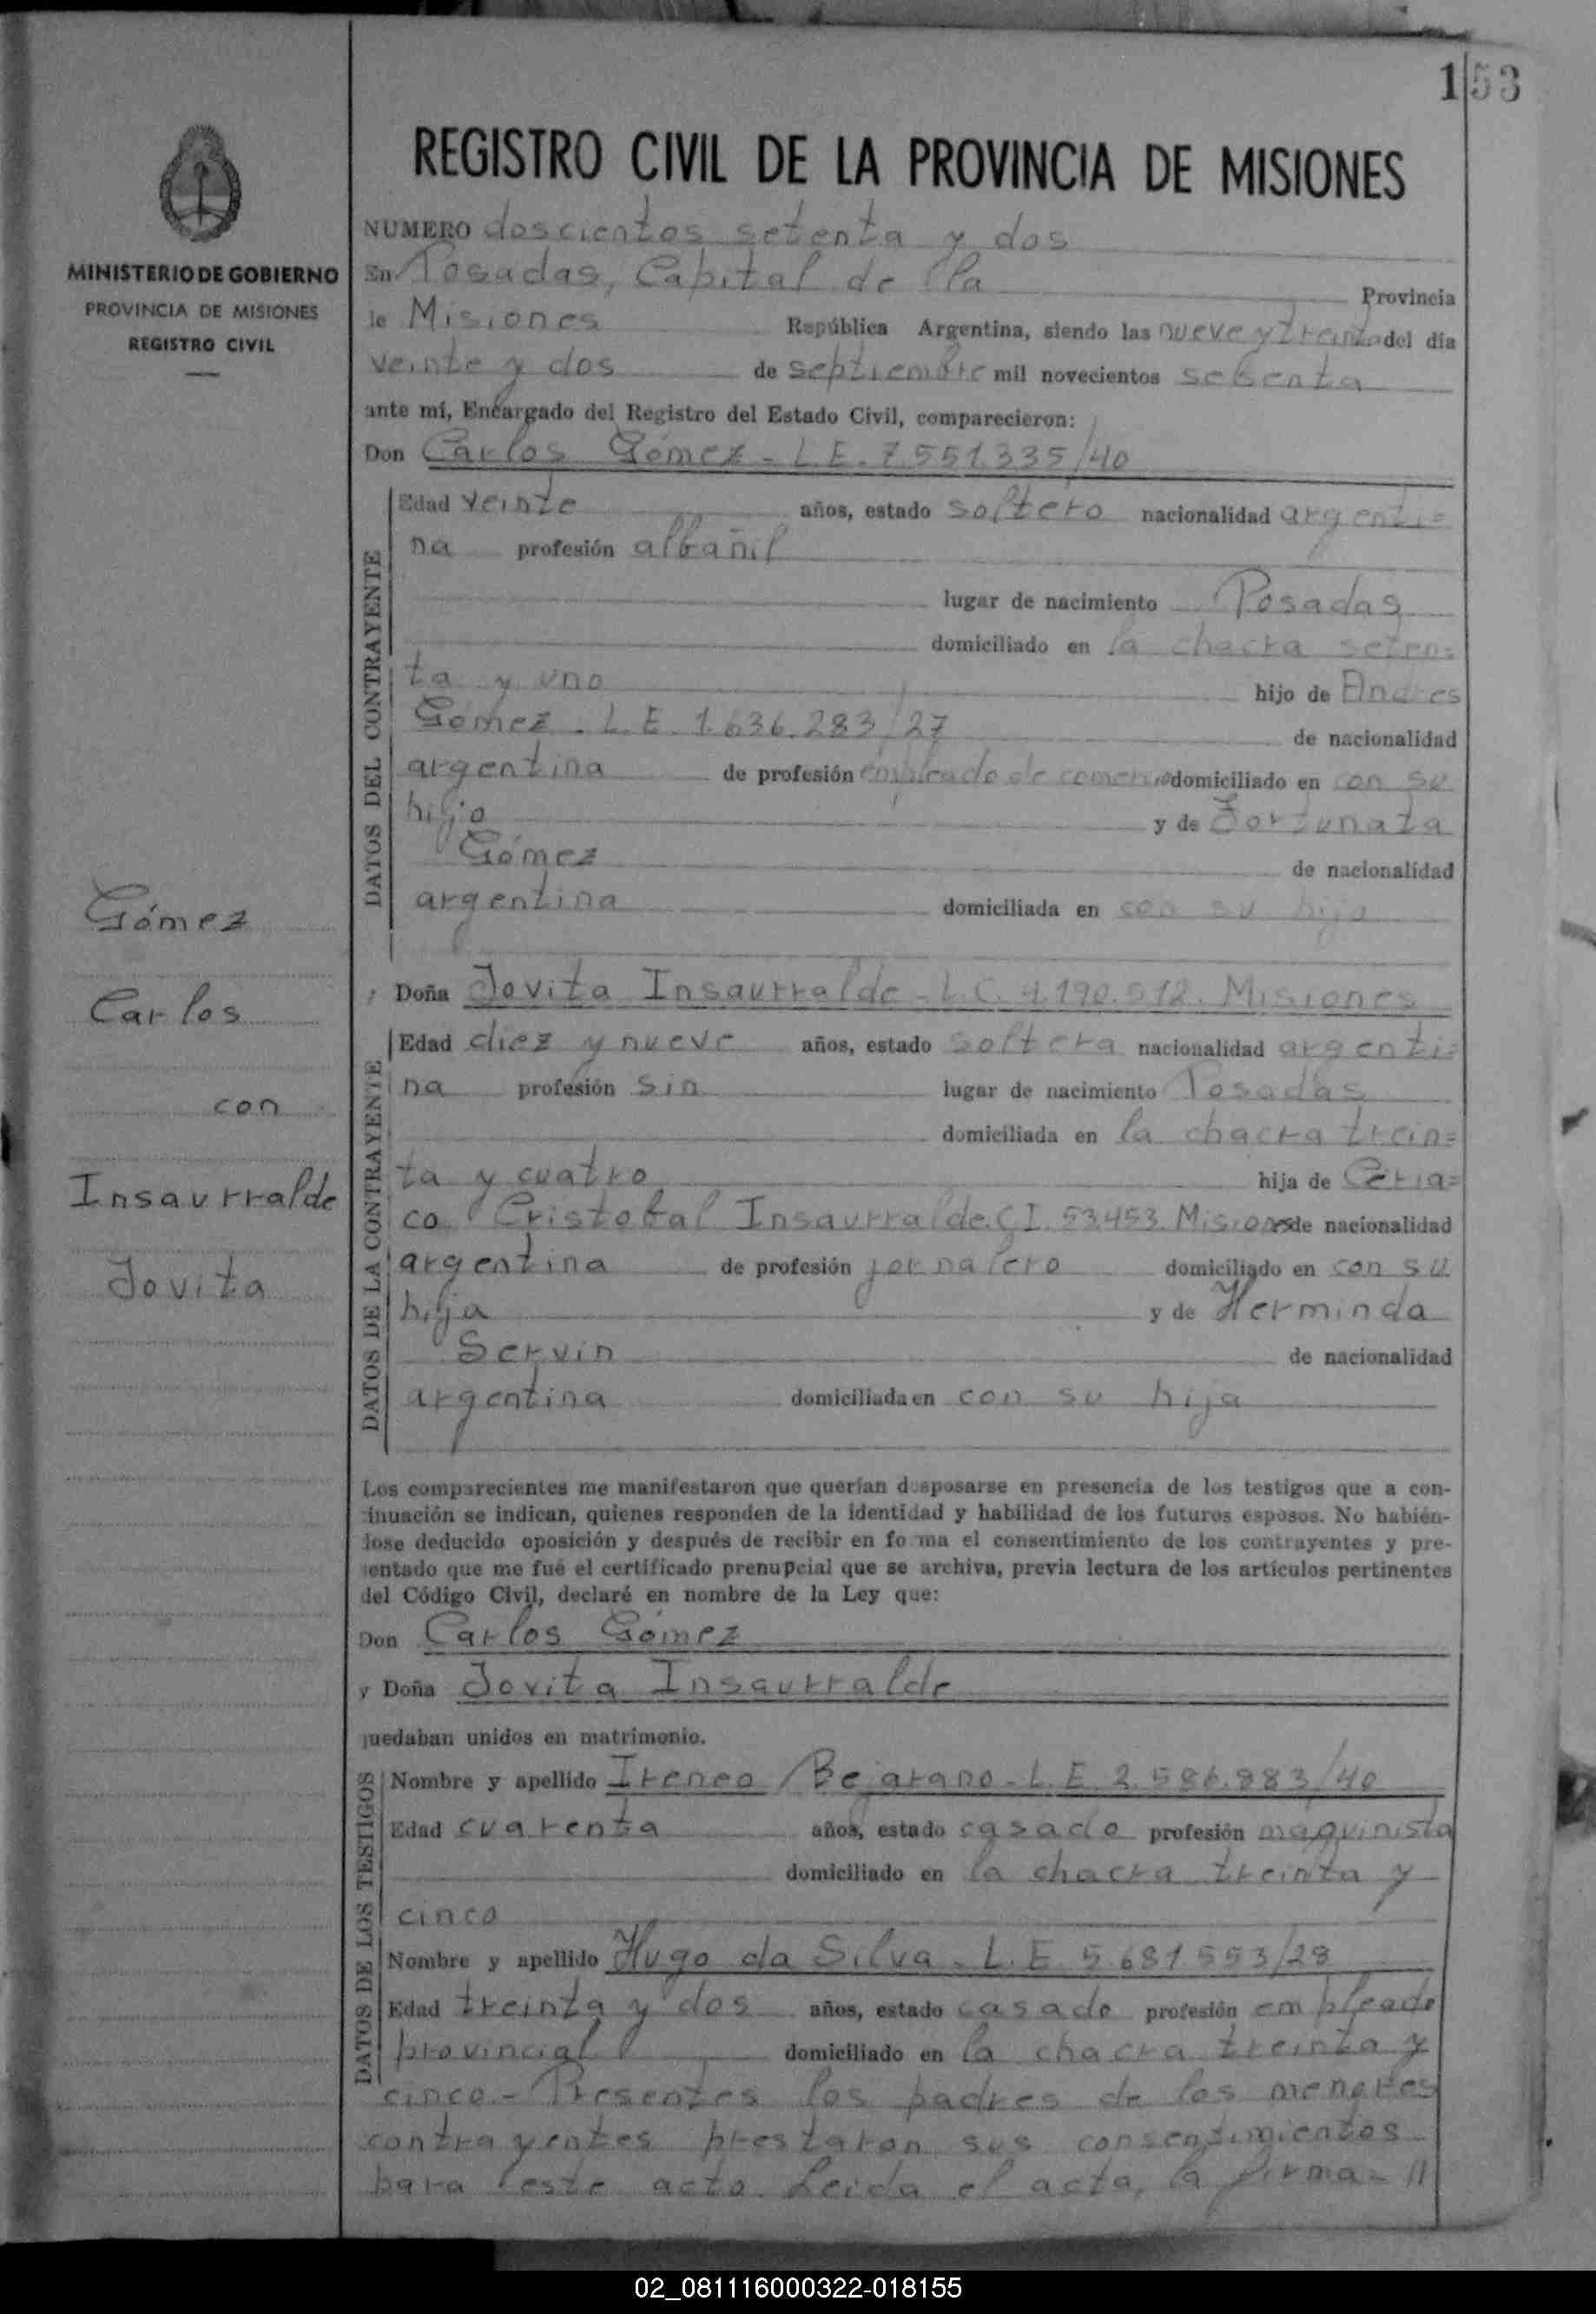 153
REGISTRO CIVIL DE LA PROVINCIA DE MISIONES
MINISTERIO DE GOBIERNO
PROVINCIA DE MISIONES
REGISTRO CIVIL
NUMERO doscientos setenta y dos
En Posadas, Capital de la Provincia
de Misiones República Argentina, siendo las nueve y treinta del día
veinte y dos de septiembre mil novecientos
ante mí, Encargado del Registro del Estado Civil, comparecieron:
Don Carlos Gómez - L.E. 7.551.335/40
DATOS DEL CONTRAYENTE
Edad veinte años, estado soltero nacionalidad argenti=
na profesión albañil
lugar de nacimiento Posadas
domiciliado en la chacra seten=
ta y uno hijo de Andres
Gómez. L.E 1.636.283/27 de nacionalidad
argentina de profesión empleado de comercio domiciliado en con su
hijo y de Fortunata
Gómez de nacionalidad
argentina domiciliada en con su hijo
Gómez
Carlos
con
Insaurralde
Jovita
y Doña Jovita Insaurralde - L.C. 4.190.512. Misiones
DATOS DE LA CONTRAYENTE
Edad diez y nueve años, estado soltera nacionalidad argenti=
na profesión sin lugar de nacimiento Posadas
domiciliada en la chacra trein=
ta y cuatro hija de Ceria=
co Cristobal Insaurralde. C.I. 53.453 Misiones de nacionalidad
argentina de profesión jornalero domiciliado en con su
hija y de Herminda
Servin de nacionalidad
argentina domiciliada en con su hija
Los comparecientes me manifestaron que querían desposarse en presencia de los testigos que a con-
tinuación se indican, quienes responden de la identidad y habilidad de los futuros esposos. No habién-
dose deducido oposición y después de recibir en forma el consentimiento de los contrayentes y pre-
sentado que me fué el certificado prenupcial que se archiva, previa lectura de los artículos pertinentes
del Código Civil, declaré en nombre de la Ley que:
Don Carlos Gómez
y Doña Jovita Insaurralde
quedaban unidos en matrimonio.
DATOS DE LOS TESTIGOS
Nombre y apellido Ireneo Bejarano - L.E. 2.586.883/40
Edad cuarenta años, estado casado profesión maquinista
domiciliado en la chacra treinta y
cinco
Nombre y apellido Hugo da Silva. L.E 5.681.553/28
Edad treinta y dos años, estado casado profesión empleado
provincial domiciliado en la chacra treinta y
cinco - Presentes los padres de los menores
contrayentes prestaron sus consentimientos
para este acto. Leida el acta, la firma= //
02_081116000322-018155